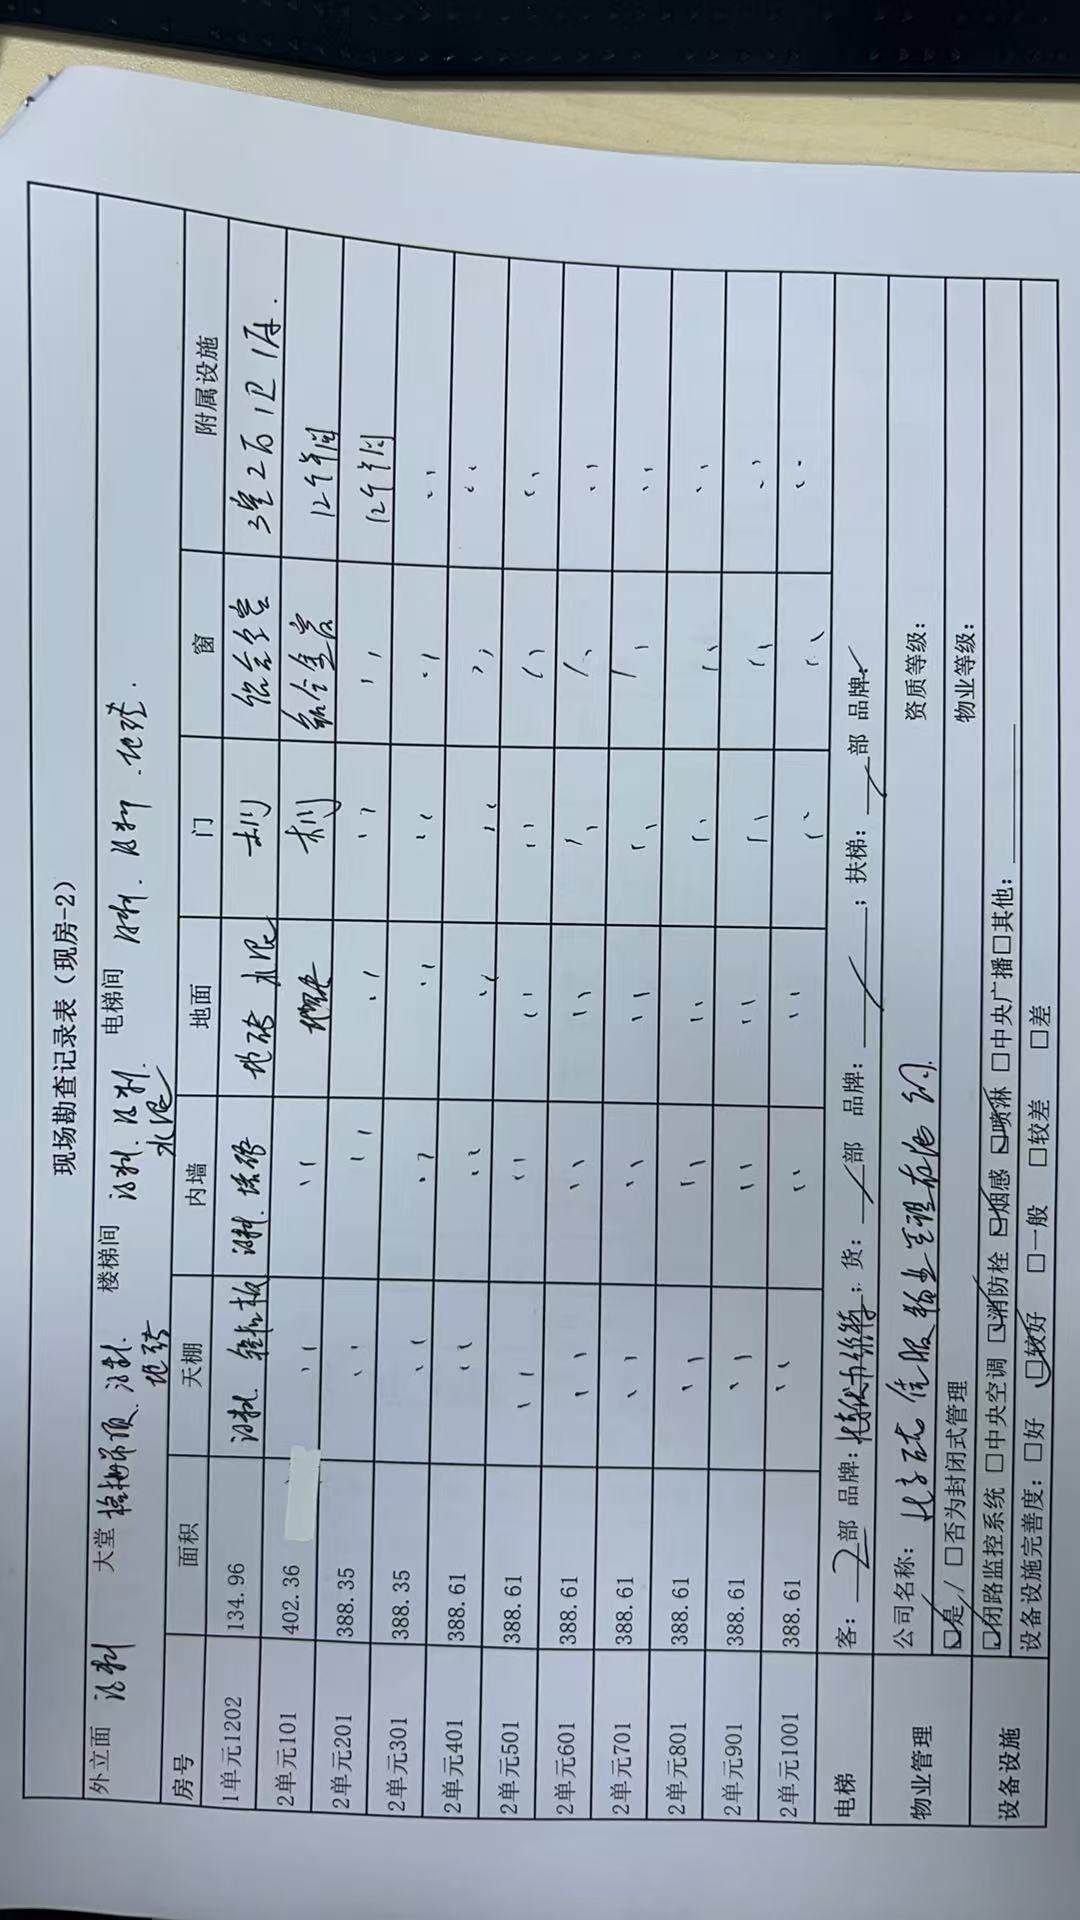 现场勘查记录表（现房-2）
外立面 涂料 大堂 涂料 地砖 楼梯间 涂料 涂料 水泥 电梯间 涂料 涂料 地砖
房号 面积 天棚 内墙 地面 门 窗 附属设施
1单元1202 134.96 涂料 铝扣板 涂料 墙砖 地砖 水泥 木门 铝合金窗 3室2厅1卫1厨
2单元101 402.36 〃 〃 木门 铝合金窗 12个单间
2单元201 388.35 〃 〃 〃 〃 〃 12个单间
2单元301 388.35 〃 〃 〃 〃 〃 〃
2单元401 388.61 〃 〃 〃 〃 〃 〃
2单元501 388.61 〃 〃 〃 〃 〃 〃
2单元601 388.61 〃 〃 〃 〃 〃 〃
2单元701 388.61 〃 〃 〃 〃 〃 〃
2单元801 388.61 〃 〃 〃 〃 〃 〃
2单元901 388.61 〃 〃 〃 〃 〃 〃
2单元1001 388.61 〃 〃 〃 〃 〃 〃
电梯 客：2部 品牌： ；货：/部 品牌：/；扶梯：/部 品牌：/
物业管理 公司名称： 资质等级：
☑是/□否为封闭式管理 物业等级：
设备设施 ☑闭路监控系统 □中央空调 ☑消防栓 ☑烟感 ☑喷淋 □中央广播□其他：
设备设施完善度：□好 ☑较好 □一般 □较差 □差